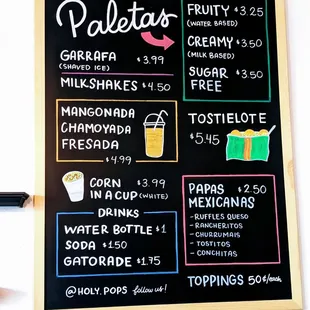 Paletas
GARRAFA $3.99
(SHAVED ICE)
MILKSHAKES $4.50
FRUITY $3.25
(WATER BASED)
CREAMY $3.50
(MILK BASED)
SUGAR $3.50
FREE
MANGONADA
CHAMOYADA
FRESADA
$4.99
TOSTIELOTE
$5.45
CORN $3.99
IN A CUP (WHITE)
DRINKS
WATER BOTTLE $1
SODA $1.50
GATORADE $1.75
PAPAS $2.50
MEXICANAS
- RUFFLES QUESO
- RANCHERITOS
- CHURRUMAIS
- TOSTITOS
- CONCHITAS
@HOLY.POPS follow us!
TOPPINGS 50¢/each